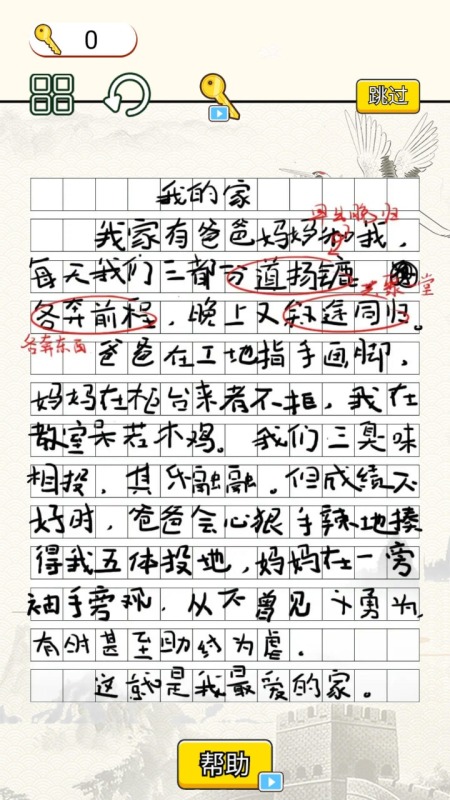 0
跳过
我的家
早出晚归
我家有爸爸妈妈和我,
每天我们三都分道扬镳
欢聚一堂
各奔前程,晚上又殊途同归。
各奔东西
爸爸在工地指手画脚,
妈妈在柜台来者不拒,我在
教室呆若木鸡。我们三臭味
相投,其乐融融。但成绩不
好时,爸爸会心狠手辣地揍
得我五体投地,妈妈在一旁
袖手旁观,从不曾见义勇为,
有时甚至助纣为虐.
这就是我最爱的家。
帮助